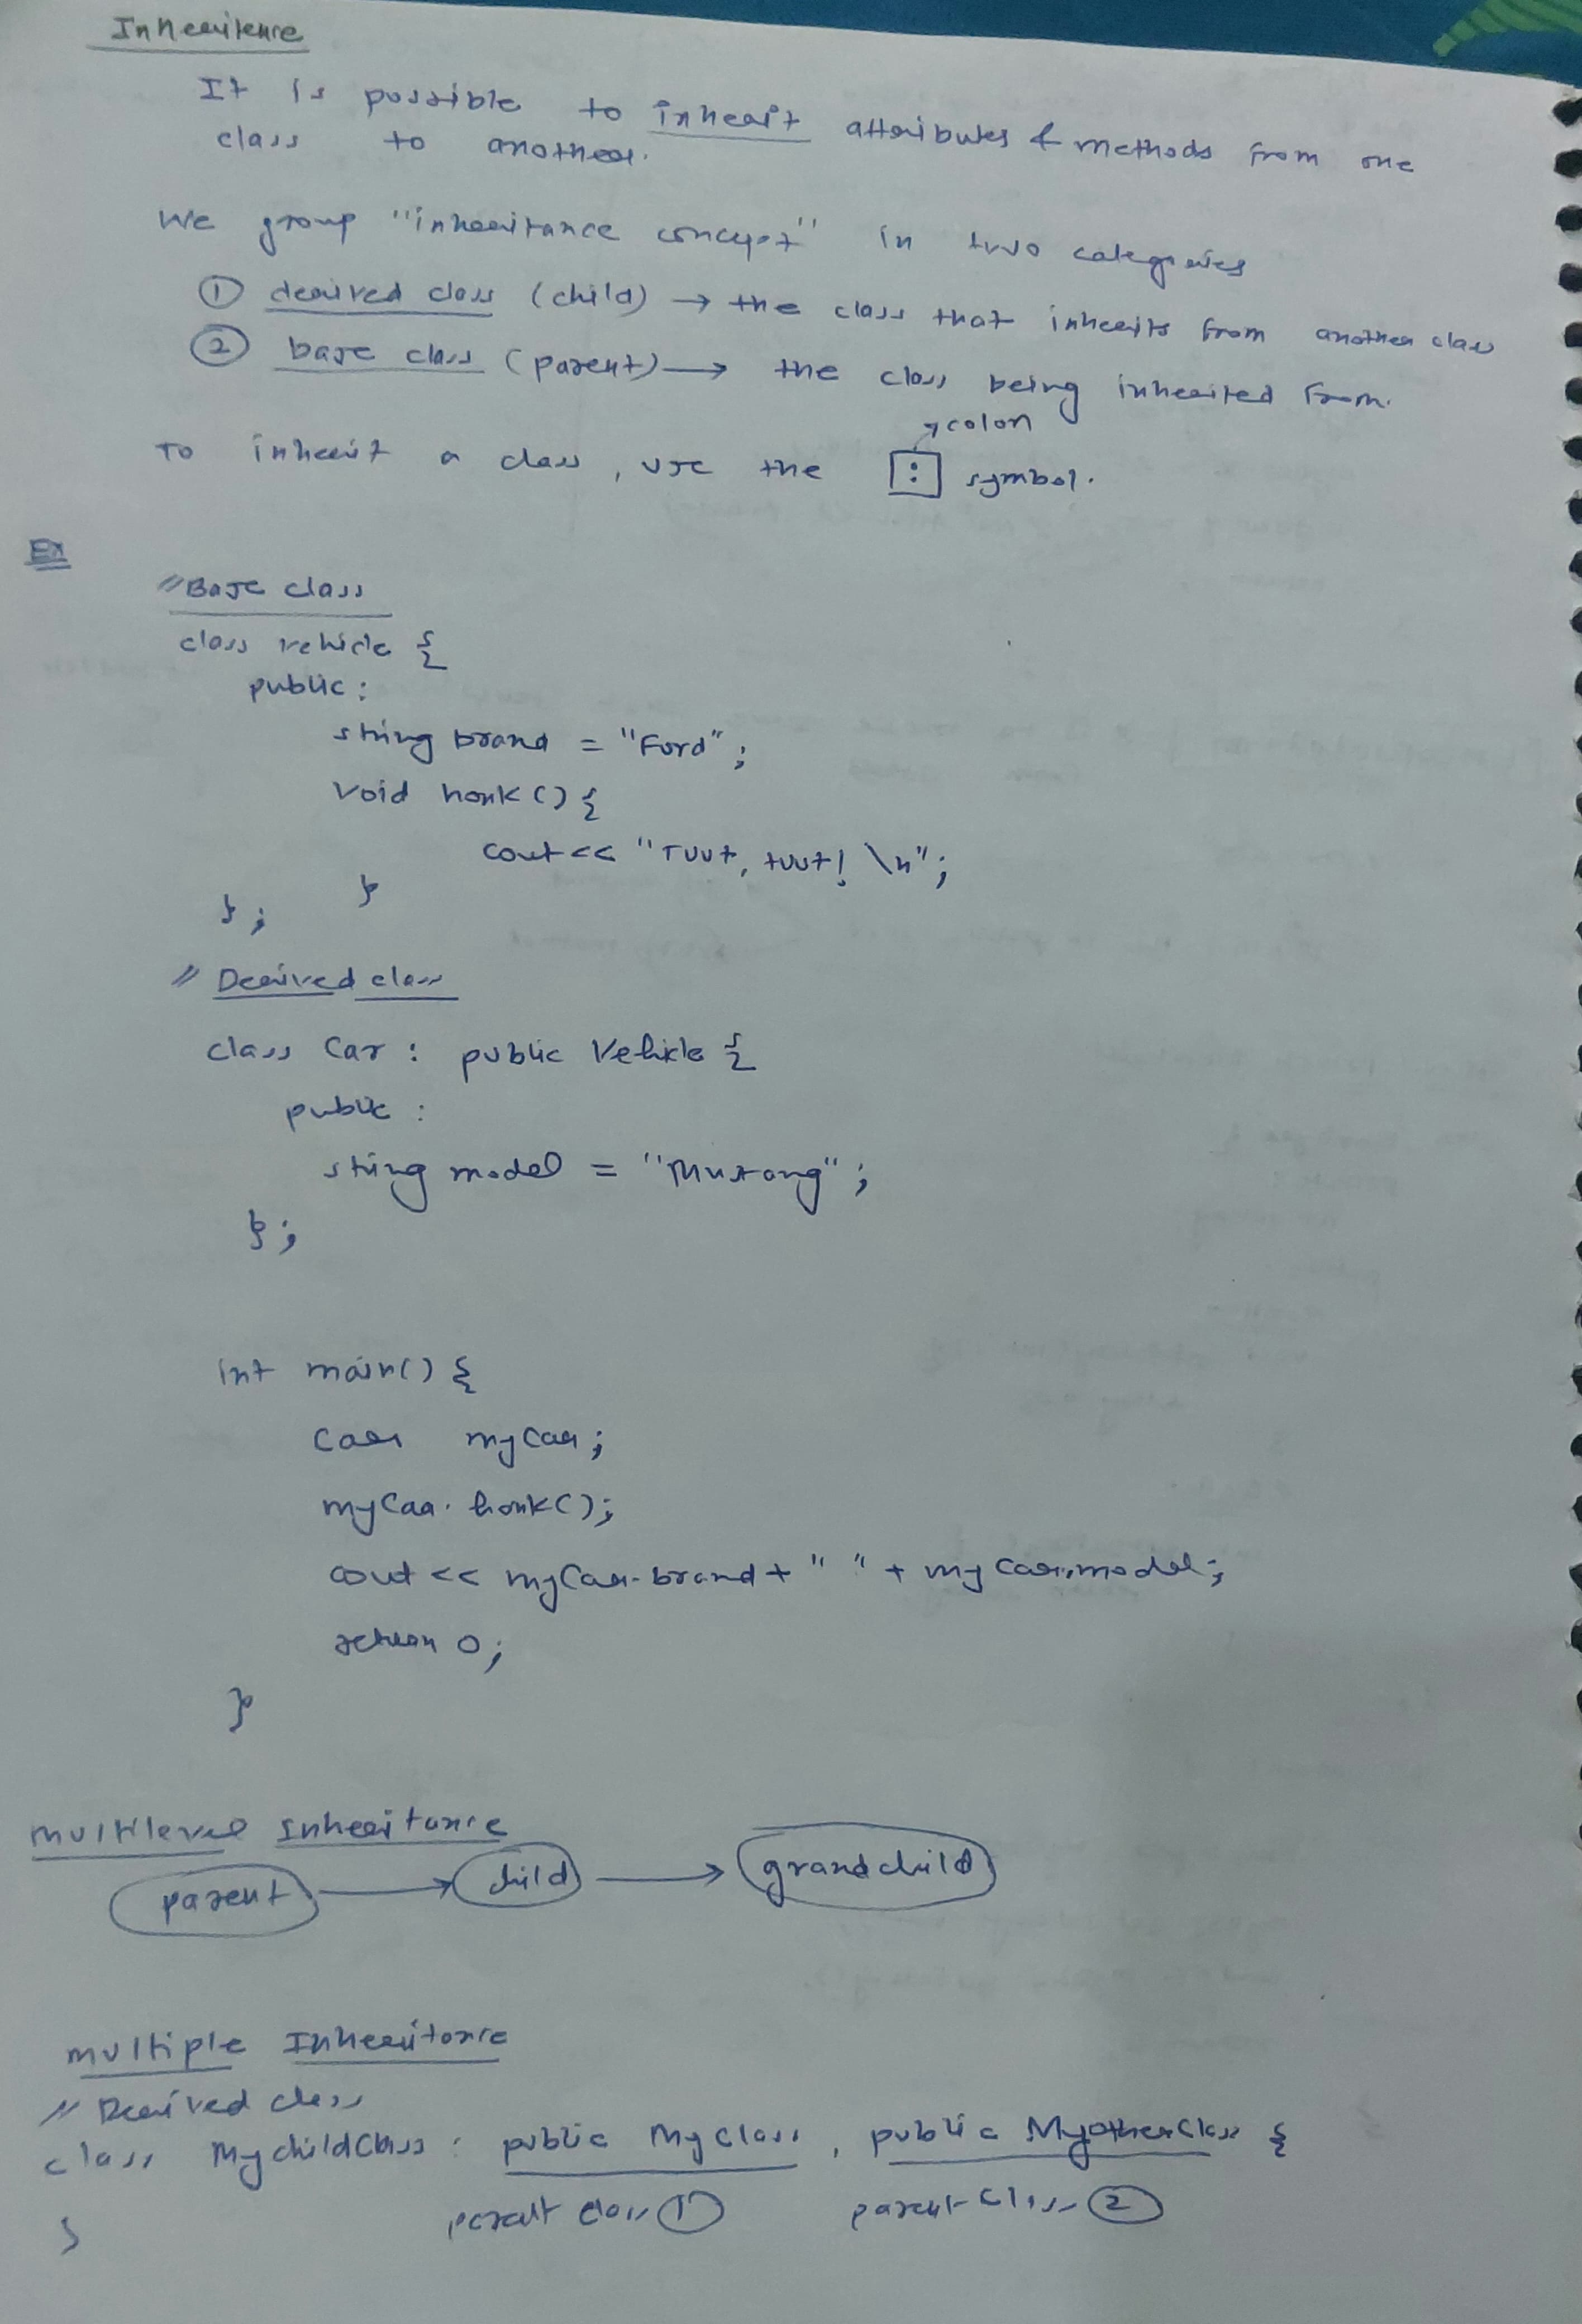 Inheritence
It is possible to inherit attributes & methods from one
class to another.
We group "inheritance concept" in two categories
① derived class (child) → the class that inherits from another class
② base class (parent) → the class being inherited from.
colon
To inherit a class, use the : symbol.
Ex
// Base class
class vehicle {
public:
string brand = "Ford";
void honk() {
cout << "Tuut, tuut! \n";
}
};
// Derived class
class Car : public Vehicle {
public :
string model = "Mustang";
};
int main() {
Car myCar;
myCar.honk();
cout << myCar.brand + " " + myCar.model;
return 0;
}
Multilevel Inheritance
parent → child → grandchild
Multiple Inheritance
// Derived class
class MychildClass : public Myclass, public MyotherClass {
parent class ① parent class ②
}